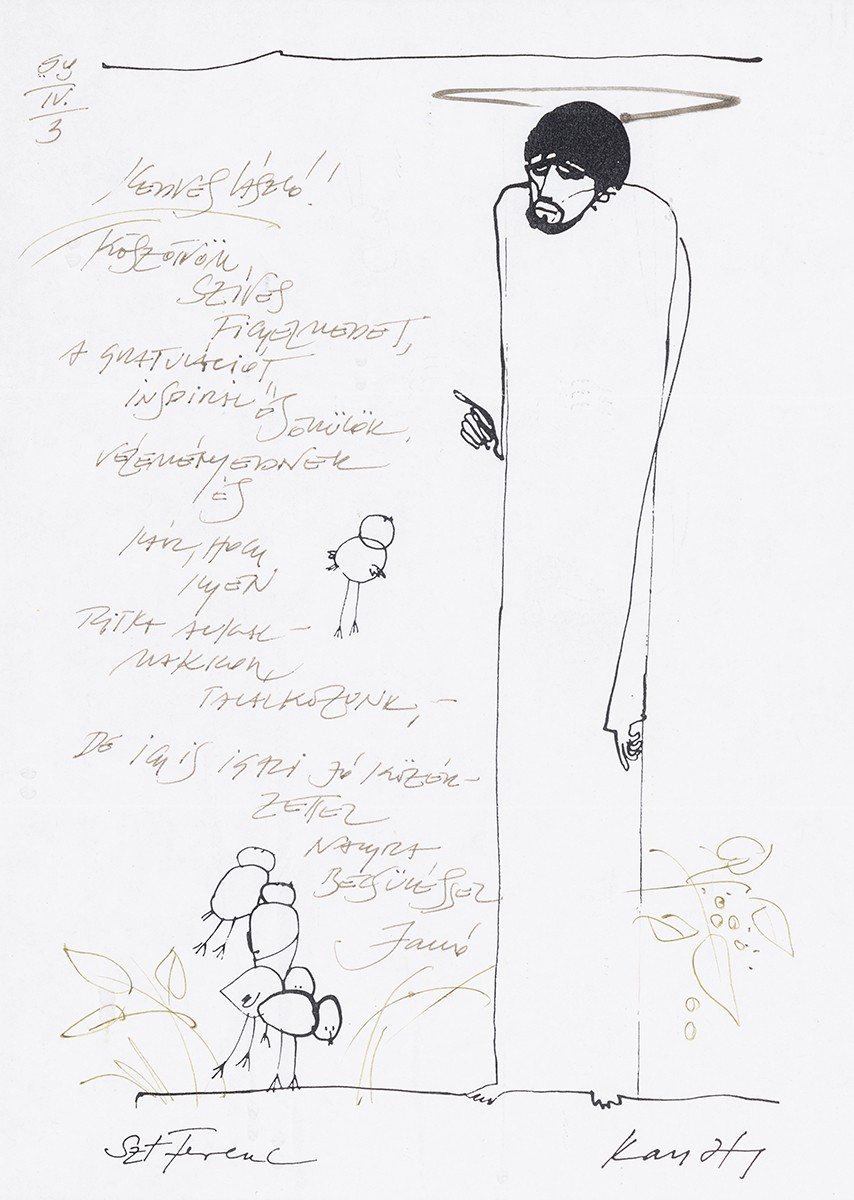 IV.
3
KEDVES LÁSZLÓ!!
KÖSZÖNÖM,
SZÍVES
FIGYELMEDET,
A GRATULÁCIÓT,
INSPIRÁL ÉS
ÖRÜLÖK,
VÉLEMÉNYEDNEK
ÉS
KÁR, HOGY
ILYEN
RITKA ALKAL-
MAKKOR,
TALÁLKOZUNK, –
DE ÍGY IS IGAZI JÓ KÖZÉR-
ZETTEL
NAGYRA
BECSÜLÉSSEL
Szt Ferenc